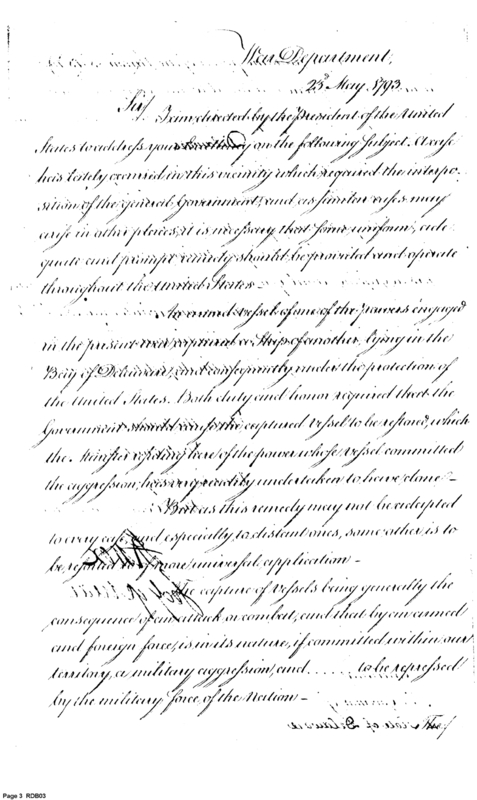 War Department,
23d May 1793.
Sir,
I am directed by the President of the United
States to address your on the following subject. A case
has lately occurred in this vicinity which required the interpo-
sition of the general Government, and as similar cases may
arise in other places, it is necessary that some uniform, ade-
quate and prompt remedy should be provided and operate
throughout the United States.
An armed vessel of one of the powers engaged
in the present war captured a Ship of another, lying in the
Bay of Delaware, and consequently under the protection of
the United States. Both duty and honor required that the
Government should the captured vessel to be restored, which
the Minister residing here of the power whose vessel committed
the aggression, has very readily undertaken to have done –
But as this remedy may not be adapted
to every case, and especially to distant ones, some other is to
be more universal application –
The capture of vessels being generally the
consequence of an attack or combat, and that by an armed
and foreign force, is in its nature, if committed within our
territory, a military aggression, and to be repressed
by the military force of the Nation –
The
Page 3 RDB03